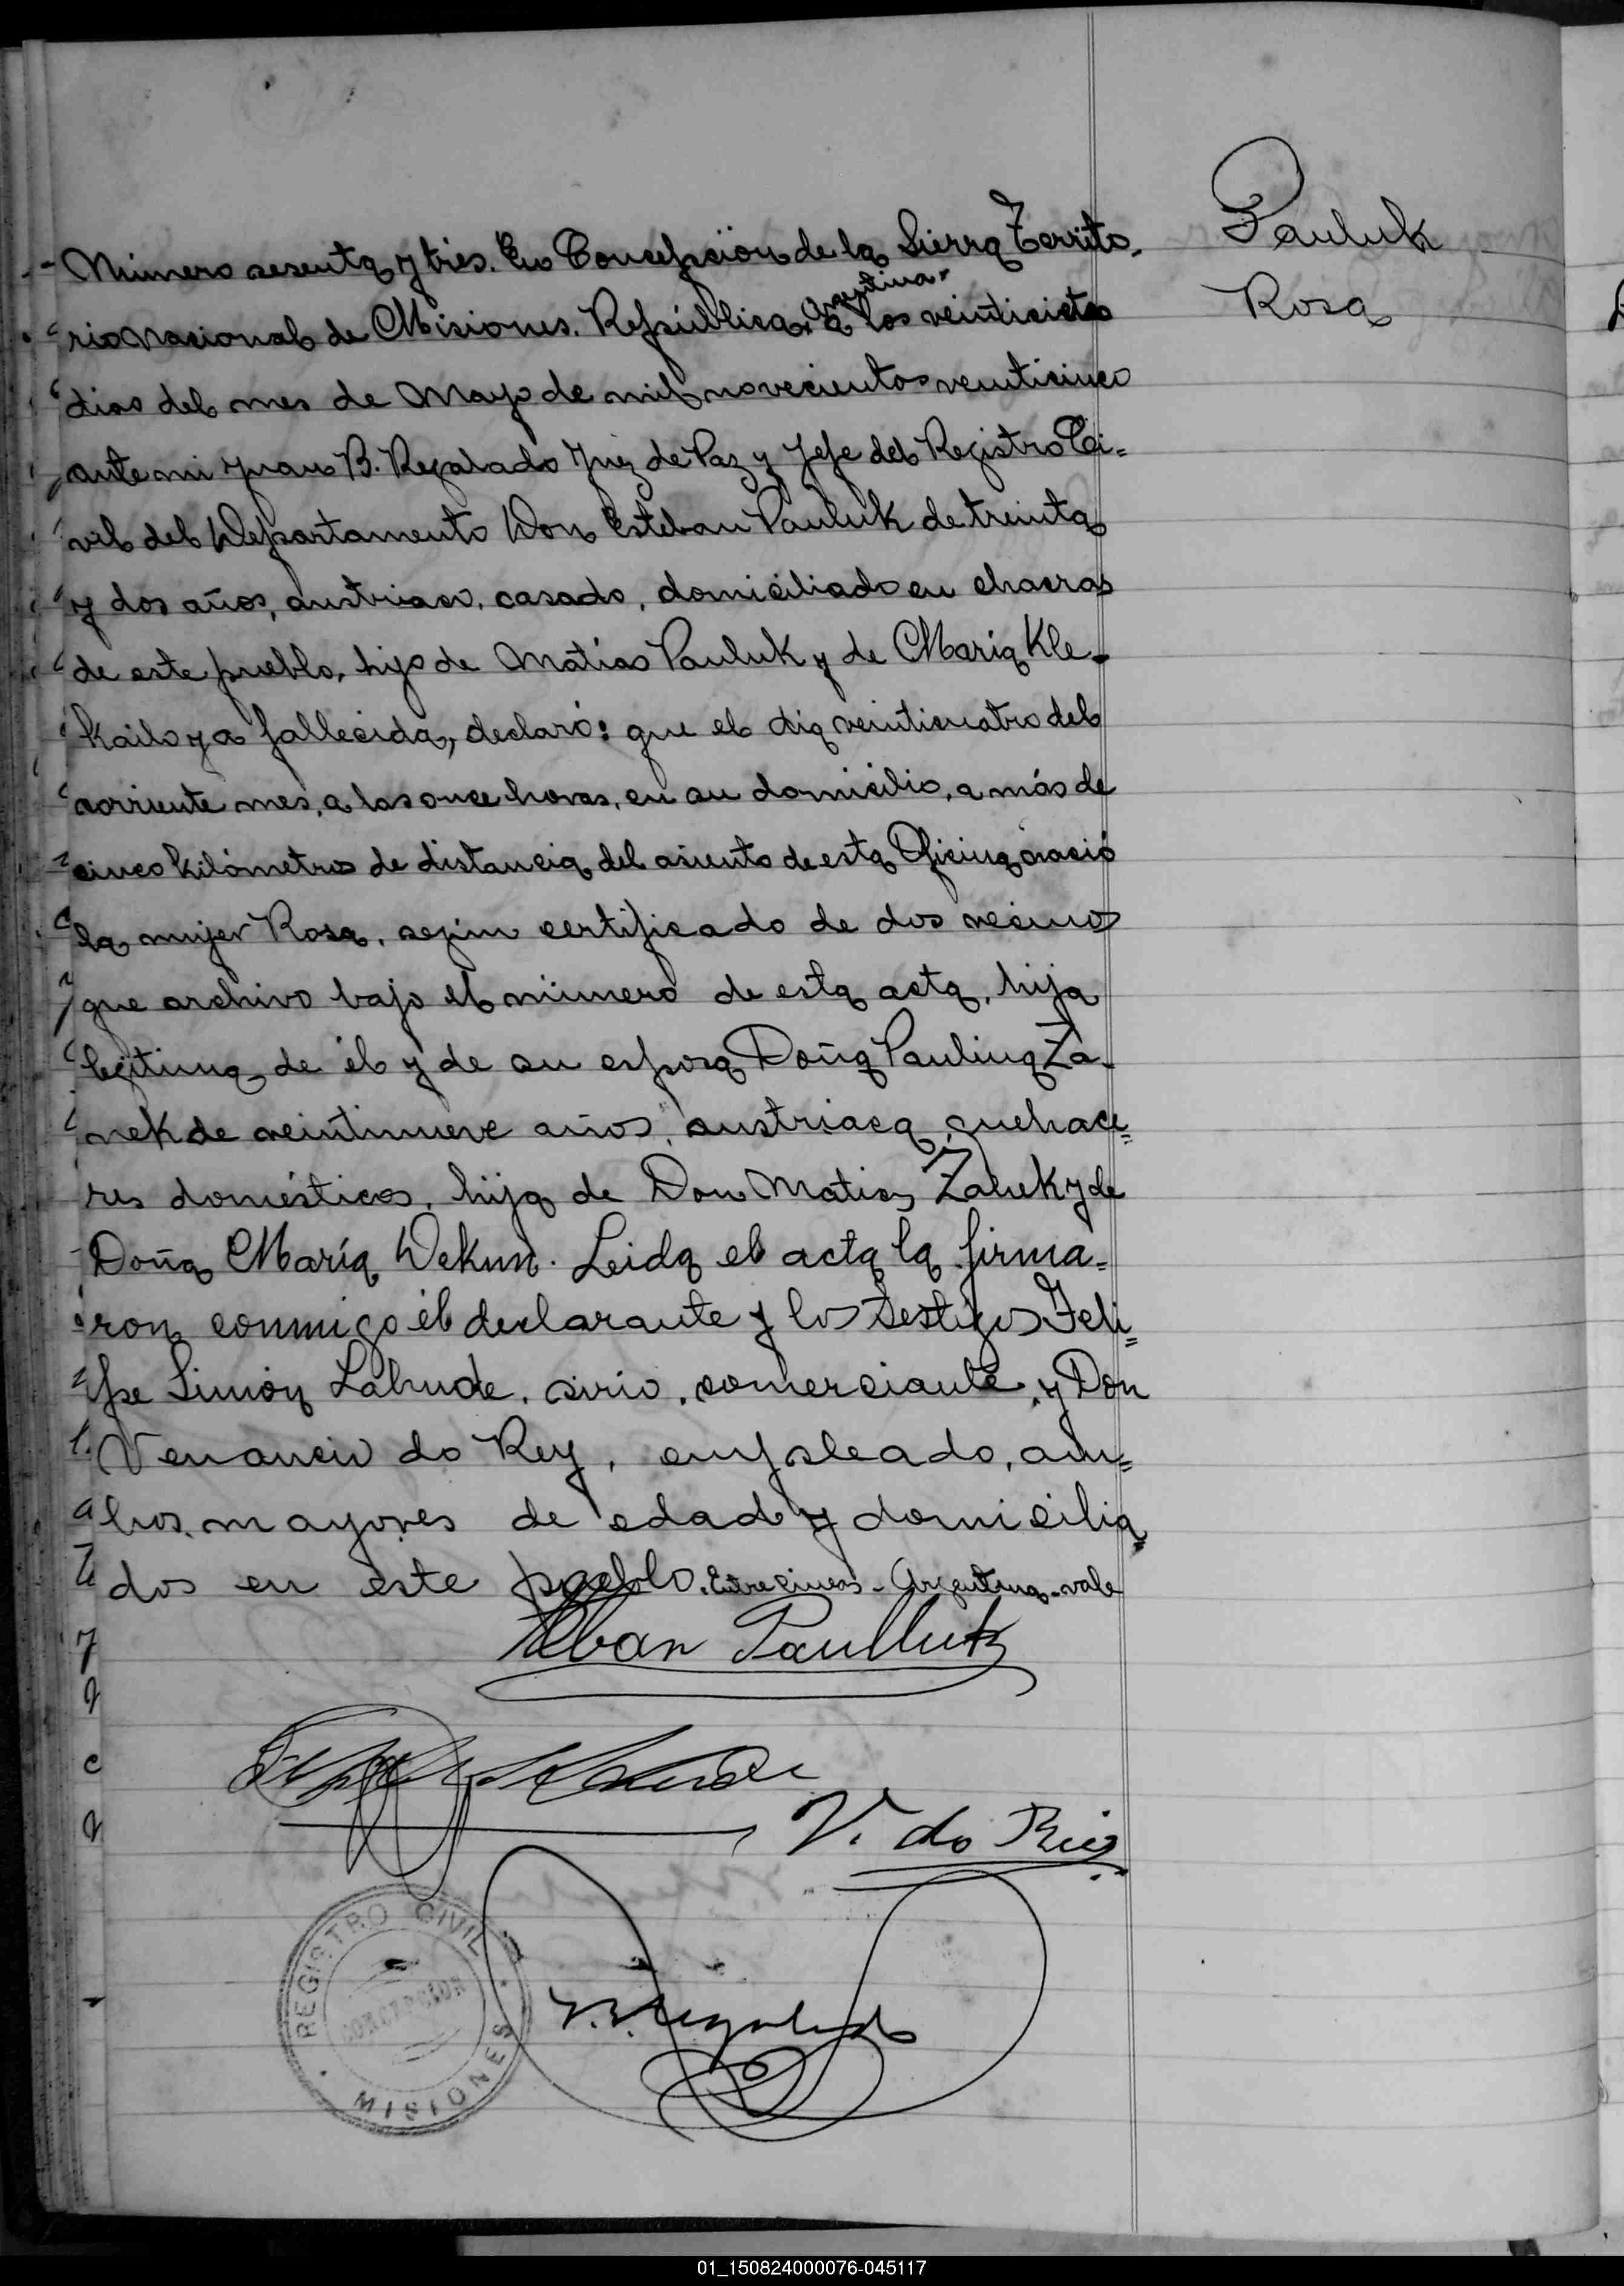 Pauluk
Rosa
Número sesenta y tres. En Concepcion de la Sierra Territo-
rio nacional de Misiones. República, Argentina, a los veintisiete
dias del mes de Mayo de mil novecientos veinticinco
ante mi Juan B. Regalado Juez de Paz y Jefe del Registro Ci=
vil del Departamento Don Esteban Pauluk de treinta
y dos años, austriaco, casado, domiciliado en chacras
de este pueblo, hijo de Matías Pauluk y de María Kle-
kailo ya fallecida, declaró: que el dia veinticuatro del
corriente mes, a las once horas, en su domicilio, a más de
cinco kilómetros de distancia del asiento de esta Oficina nació
la mujer Rosa, según certificado de dos vecinos
que archivo bajo el número de esta acta, hija
legitima de él y de su esposa Doña Paulina Za-
nek de veintinueve años, austriaca, quehace=
res domésticos, hija de Don Matias Zaluk y de
Doña María Dekun. Leida el acta la firma=
ron conmigo él declarante y los testigos Feli=
pe Simón Lahude, sirio, comerciante, y Don
Venancio do Rey, empleado, am=
bos mayores de edad y domicilia=
dos en este pueblo. Entre lineas - Argentina - vale
Paulluk
V. do Rey
J.B. Regalado
REGISTRO CIVIL
CONCEPCION
MISIONES
01_150824000076-045117